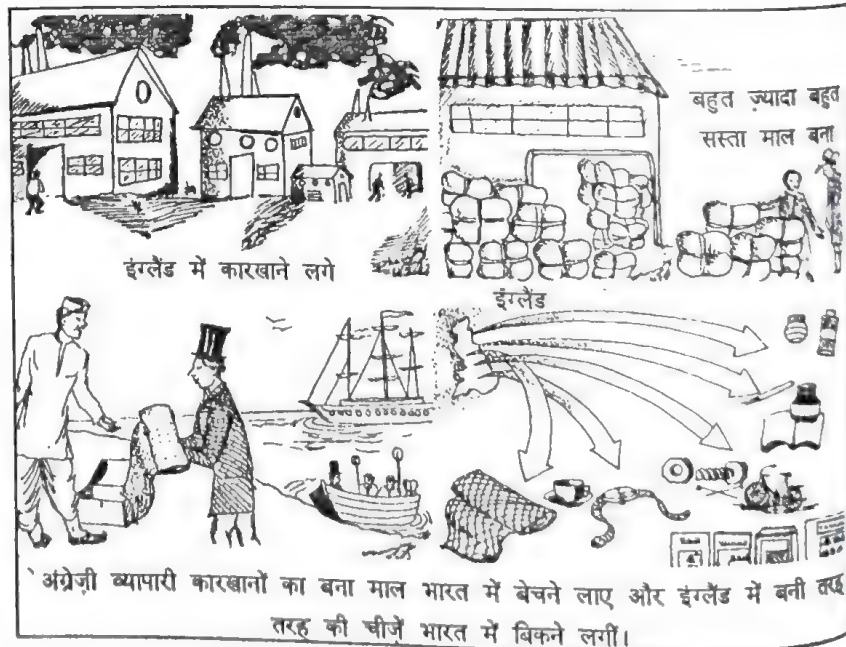 बहुत ज़्यादा बहुत
सस्ता माल बना
इंग्लैंड में कारखाने लगे
इंग्लैंड
अंग्रेज़ी व्यापारी कारखानों का बना माल भारत में बेचने लाए और इंग्लैंड में बनी तरह
तरह की चीज़ें भारत में बिकने लगीं।